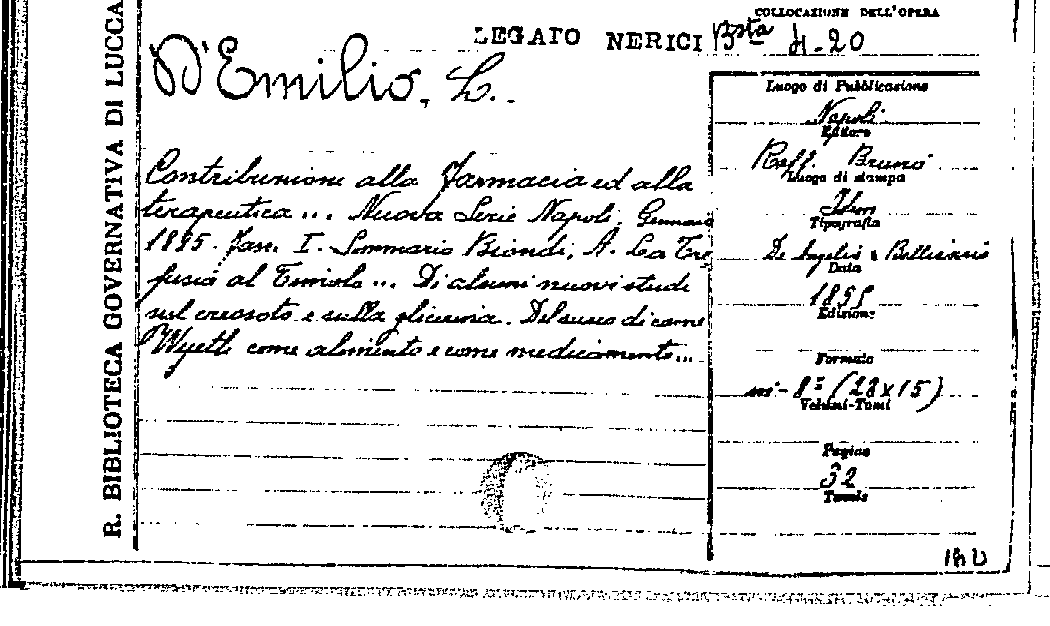 COLLOCAZIONE DELL'OPERA
LEGATO NERICI Bsta 4-20
D'Emilio, L.
Contribuzione alla Farmacia ed alla
terapeutica ... Nuova Serie Napoli, Gennaio
1895. Fasc. I. Sommario Biondi, A. La Tre
fusia al Timolo ... Di alcuni nuovi studi
sul creosoto e sulla glicerina. Del suco di carne
Wyeth come alimento e come medicamento ...
R. BIBLIOTECA GOVERNATIVA DI LUCCA
Luogo di Pubblicazione
Napoli
Editore
Raff. Bruno
Luogo di stampa
Idem
Tipografia
De Angelis & Bellisario
Data
1895
Edizione
Formato
in-8° (23x15)
Volumi-Tomi
Pagine
32
Tavole